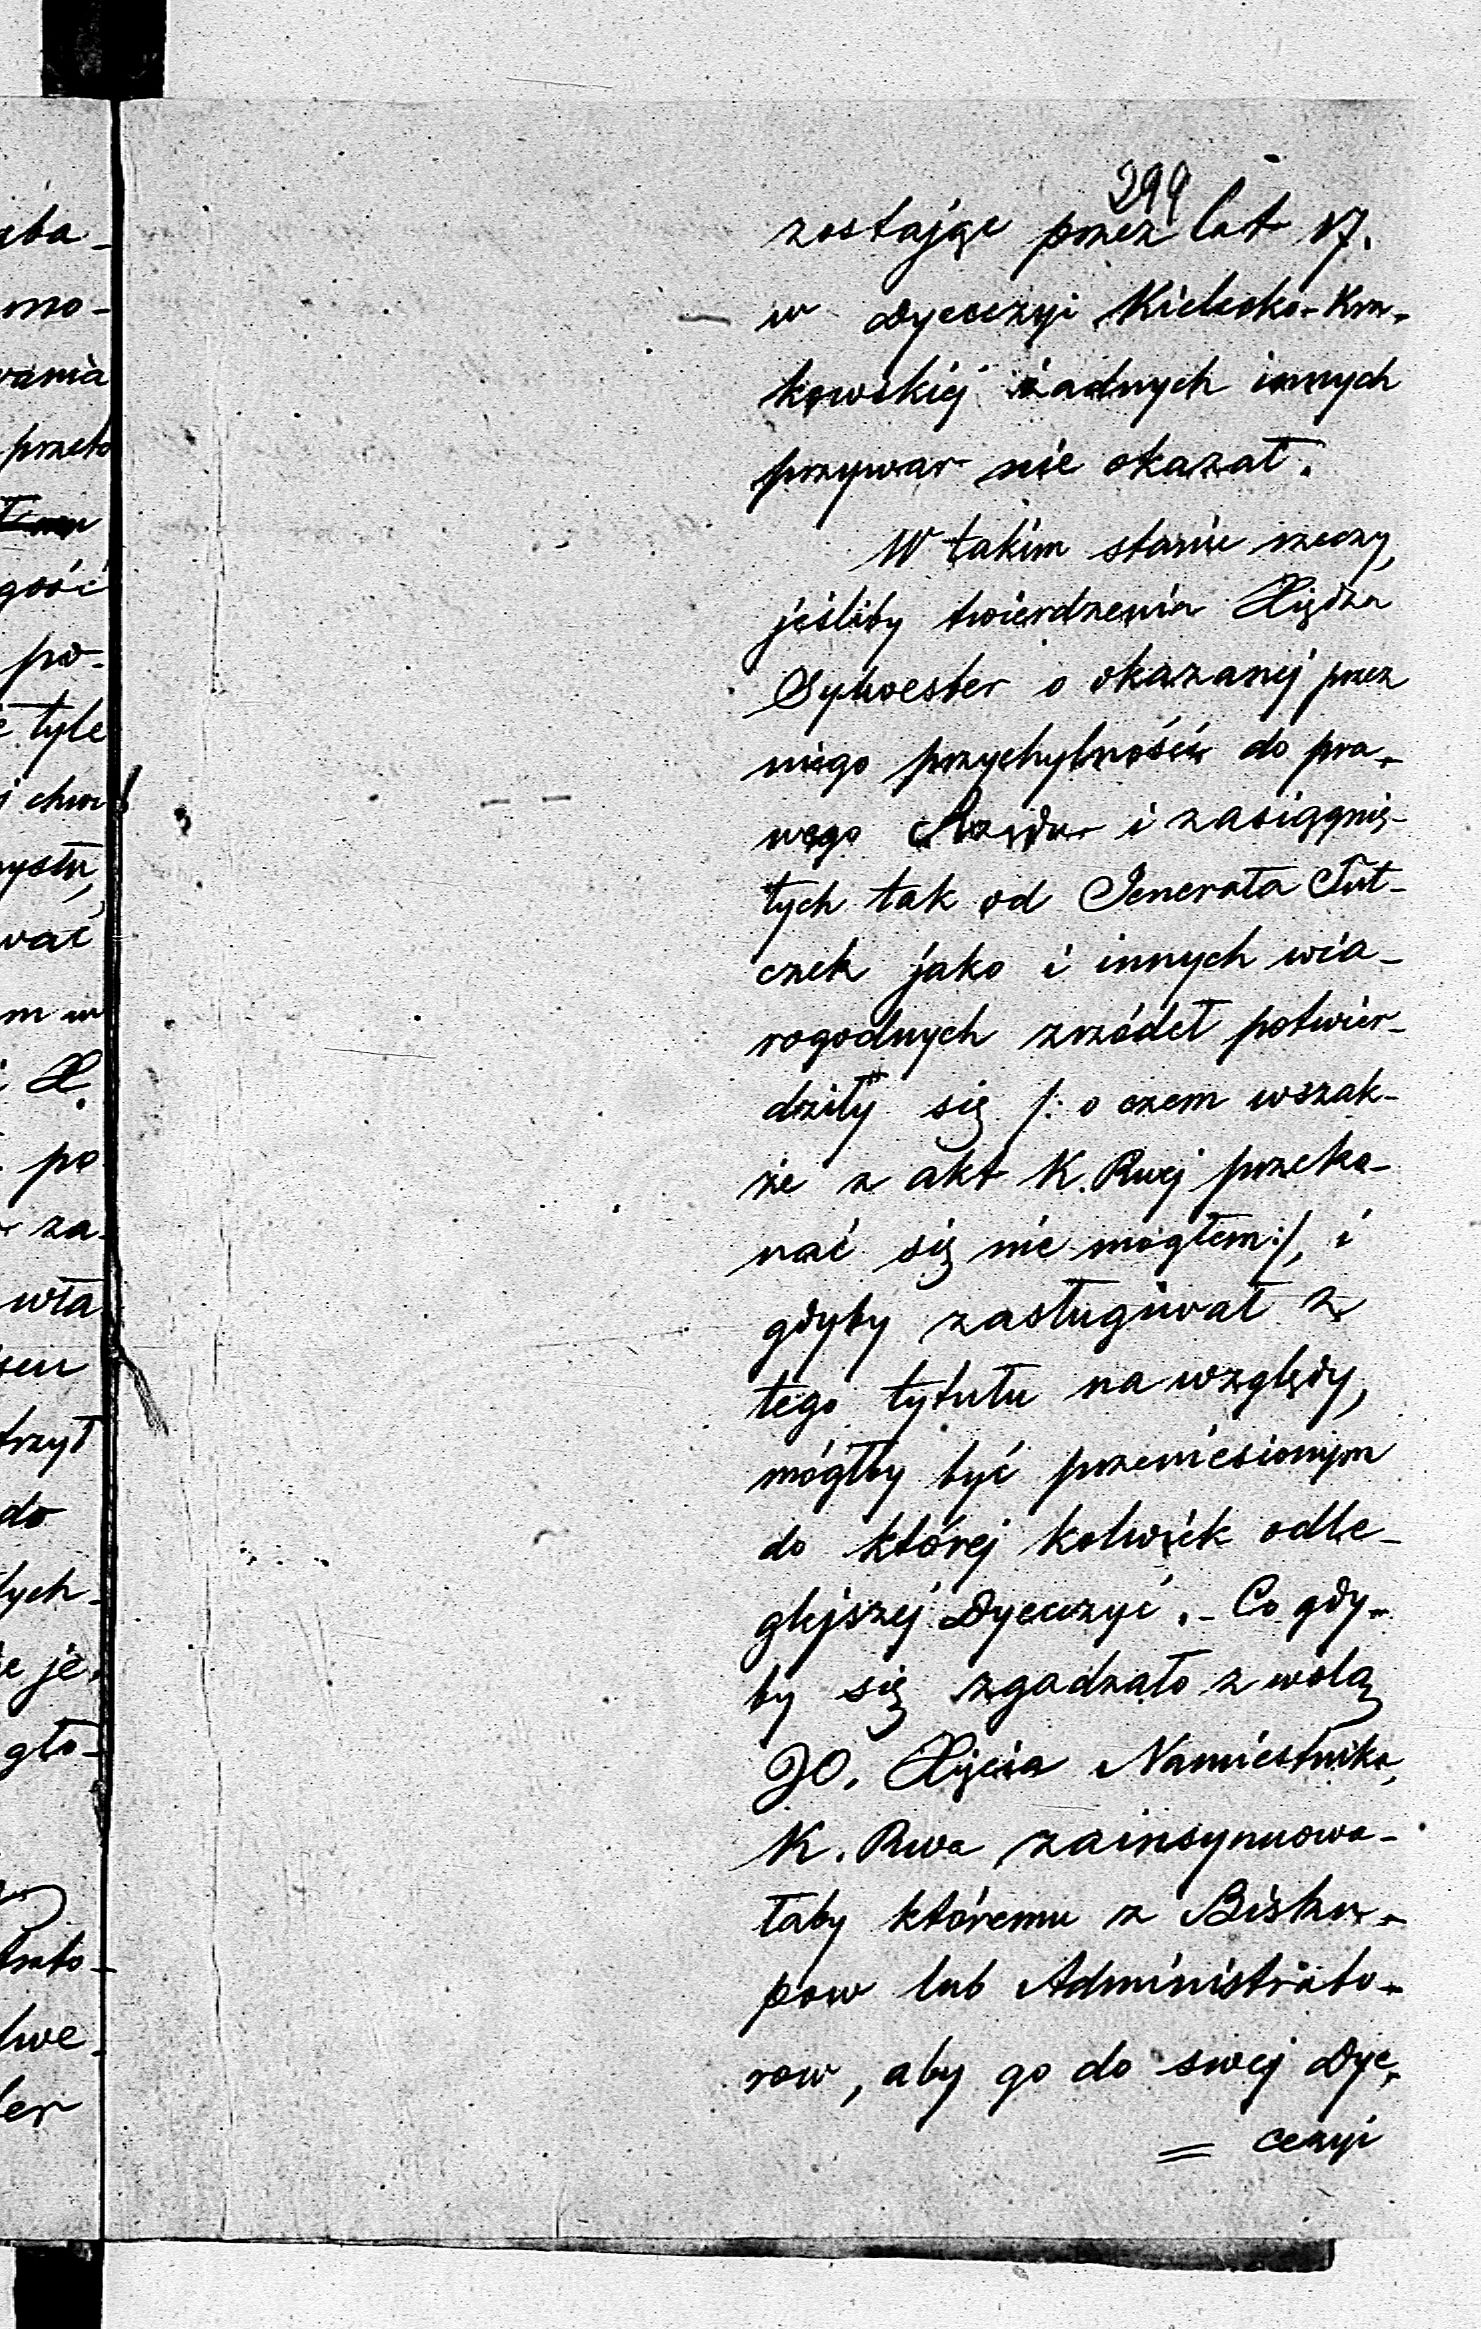 299
zostając przez lat 17.
w Dyecezyi Kielecko-Kra-
kowskiéj żadnych innych
przywar nie okazał.
W takim stanie rzeczy,
jeśliby twierdzenia Xiędza
Sylwester o okazanej przez
niego przychylności do pra-
wego Rządu i zasięgnię-
tych tak od Jenerała Tut-
czek jako i innych wia-
rogodnych zrzódeł potwier-
dziły się /: o czem wszak-
że z akt K. Rwej przeko-
nać się nie mogłem :/, i
gdyby zasługiwał z
tego tytułu na względy,
mógłby być przeniesionym
do której kolwiek odle-
glejszej Dyecezyi. - Co gdy-
by się zgadzało z wolą
JO. Xięcia Namiestnika,
K. Rwa zainsynuowa-
łaby któremu z Bisku-
pow lub Administrato-
row, aby go do swej Dye-
= cezyi
aba-
mo-
wania
przeto
gości
po-
tyle
chw
wać
m w
X.
po
za-
wła
trzył
do
tych-
je-
gło-
trato-
lwe-
ter